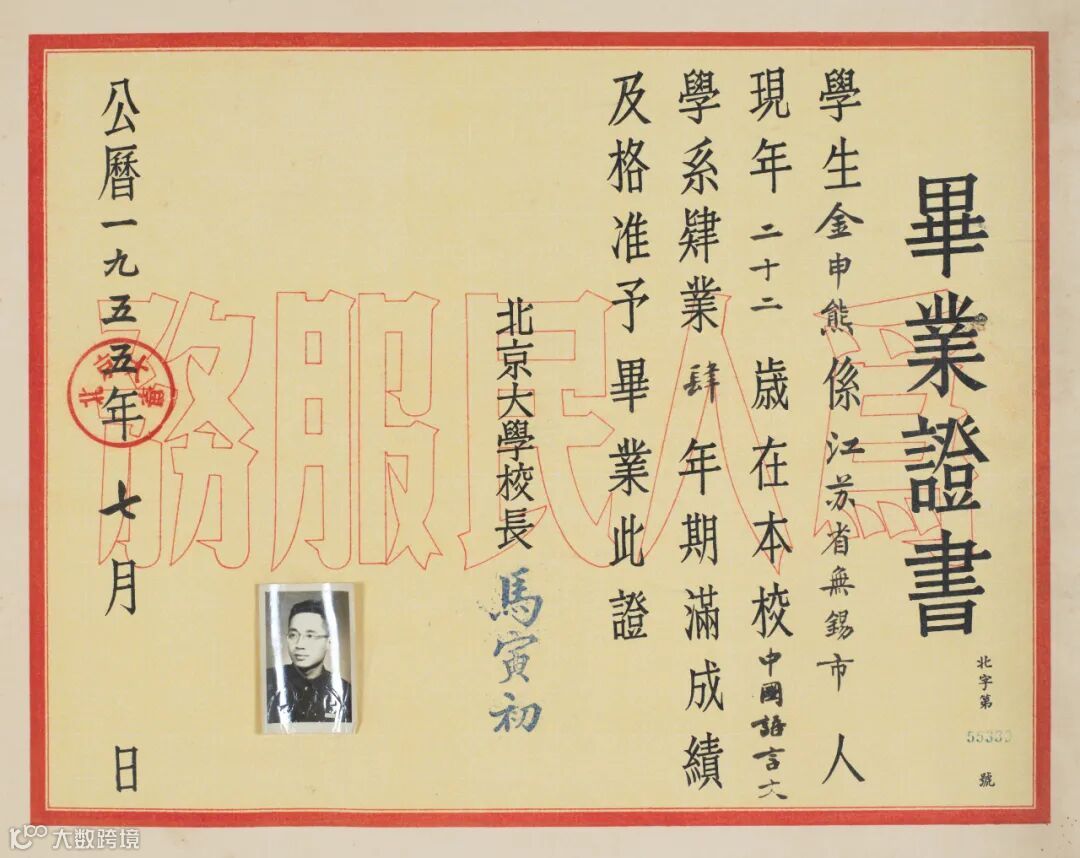 畢業證書
北字第55333號
學生金申熊係江苏省無錫市人
現年二十二歲在本校中國語言文
學系肄業肆年期滿成績
及格准予畢業此證
北京大學校長 馬寅初
公曆一九五五年七月 日
為人民服務
大数跨境